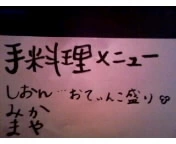 手料理メニュー
しおん…おてぃんこ盛り♡
みか
まや